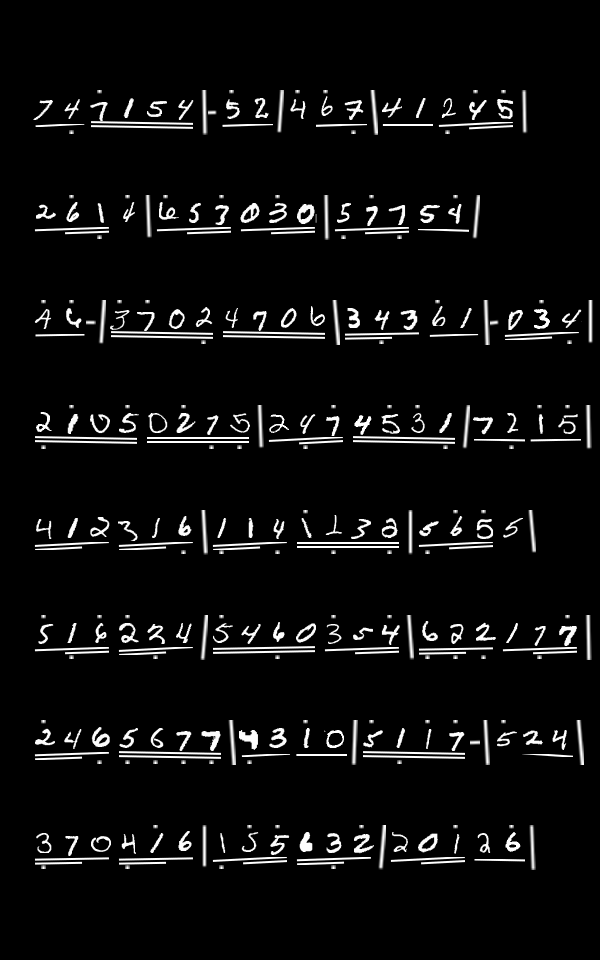 747154|-52|467|41245
2614|653030|57754
46-|37024706|34361|-034
21050275|2474531|7215
412316|1141132|5655
516224|5460354|622177
2465677|4310|5117-|524
370416|155632|20126